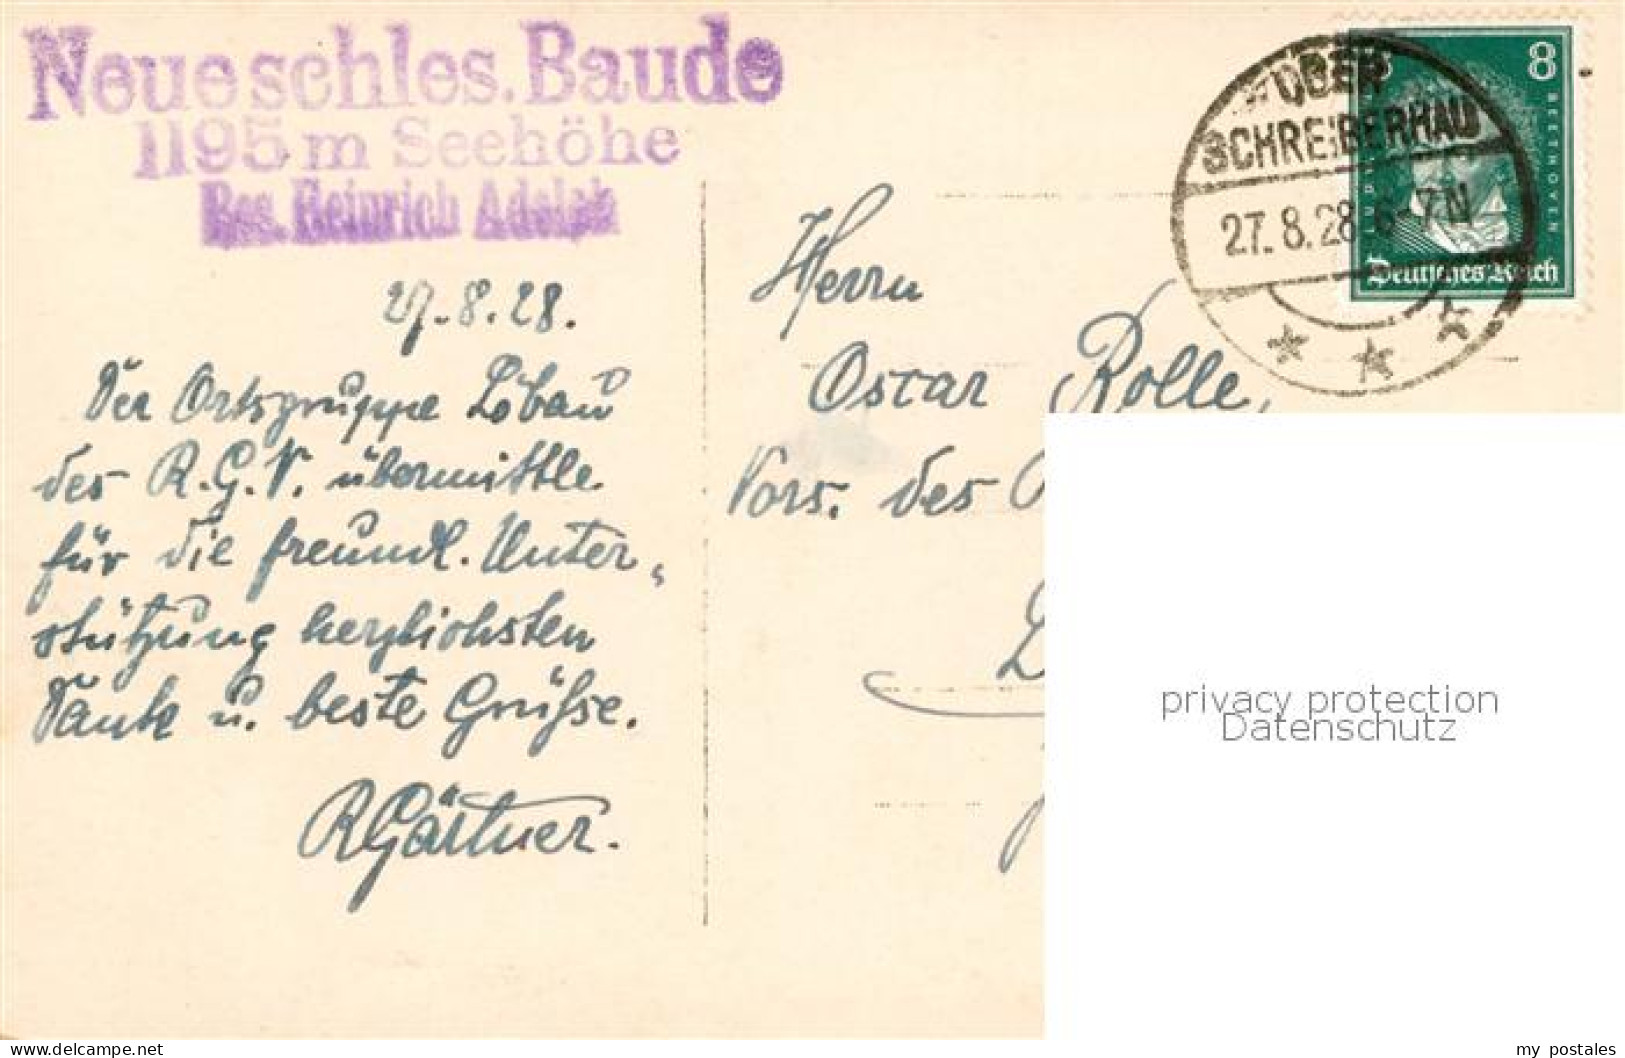 Neue schles. Baude
1195 m Seehöhe
Bes. Heinrich Adolph
27.8.28.
Der Ortsgruppe Löbau
des R.G.V. übermittle
für die freundl. Unter-
stützung herzlichsten
Dank u. beste Grüsse.
RGärtner.
OBER
SCHREIBERHAU
27.8.28 6-7N
8 8
LUDWIG BEETHOVEN
Deutsches Reich
Herrn
Oscar Rolle,
Vors. des
privacy protection
Datenschutz
my postales
DELCAMPE.NET